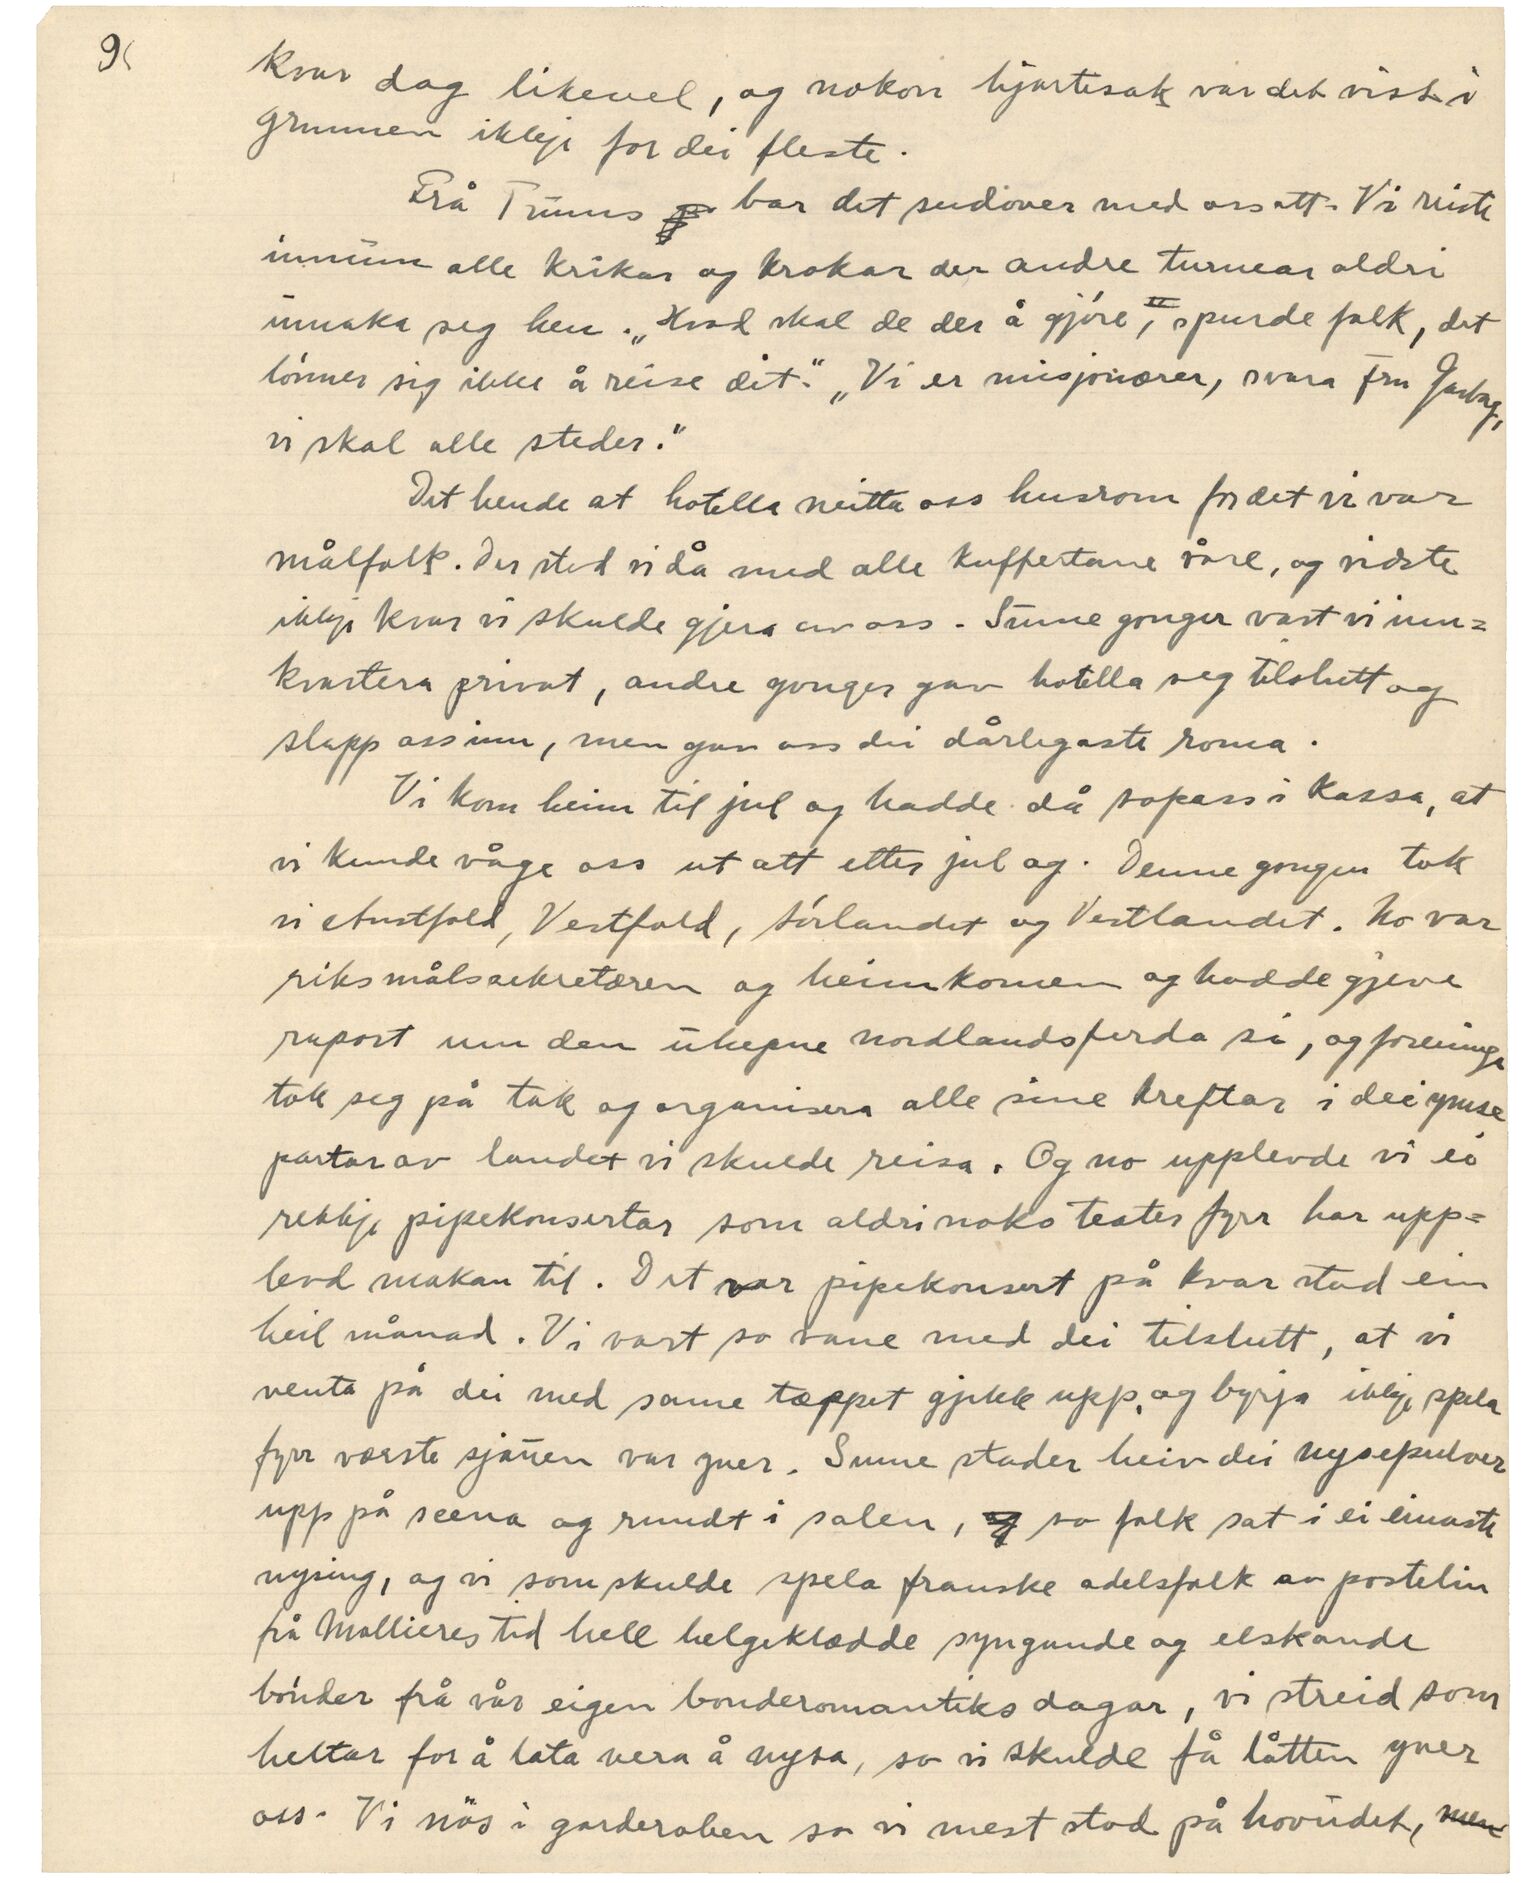 9
kvar dag likevel, og nokon hjartesak var det visst i
grunnen ikkje for dei fleste.
Frå Trums bar det sudover med oss att. Vi reiste
innum alle krikar og krokar der andre turnear aldri
umaka seg hen. „Hvad skal de der å gjøre," spurde folk, det
lønner sig ikke å reise dit." „Vi er misjonærer, svara fru Garborg,
vi skal alle steder."
Det hende at hotella neitta oss husrom fordet vi var
målfolk. Der stod vi då med alle kuffertane våre, og visste
ikkje kvar vi skulde gjera av oss. Sume gonger vart vi inn=
kvartera privat, andre gonger gav hotella seg tilslutt og
slapp oss inn, men gav oss dei dårlegaste roma.
Vi kom heim til jul og hadde då sopass i kassa, at
vi kunde våge oss ut att etter jul og. Denne gongen tok
vi Austfold, Vestfold, Sørlandet og Vestlandet. No var
riksmålssekretæren og heimkomen og hadde gjeve
raport um den uhepne nordlandsferda si, og foreninga
tok seg på tak og organisera alle sine kreftar i dei ymse
partar av landet vi skulde reisa. Og no upplevde vi ei
rekkje pipekonsertar som aldri noko teater fyrr har upp=
levd makan til. Det var pipekonsert på kvar stad ein
heil månad. Vi vart so vane med dei tilslutt, at vi
venta på dei med same tæppet gjekk upp, og byrja ikkje spela
fyrr værste sjauen var yver. Sume stader heiv dei nysepulver
upp på scena og rundt i salen, so folk sat i ei einaste
nysing, og vi som skulde spela franske adelsfolk av postelin
frå Mollieres tid hell helgeklædde syngande og elskande
bønder frå vår eigen bonderomantiks dagar, vi streid som
heltar for å lata vera å nysa, so vi skulde få låtten yver
oss. Vi nøs i garderoben so vi mest stod på hovudet, men